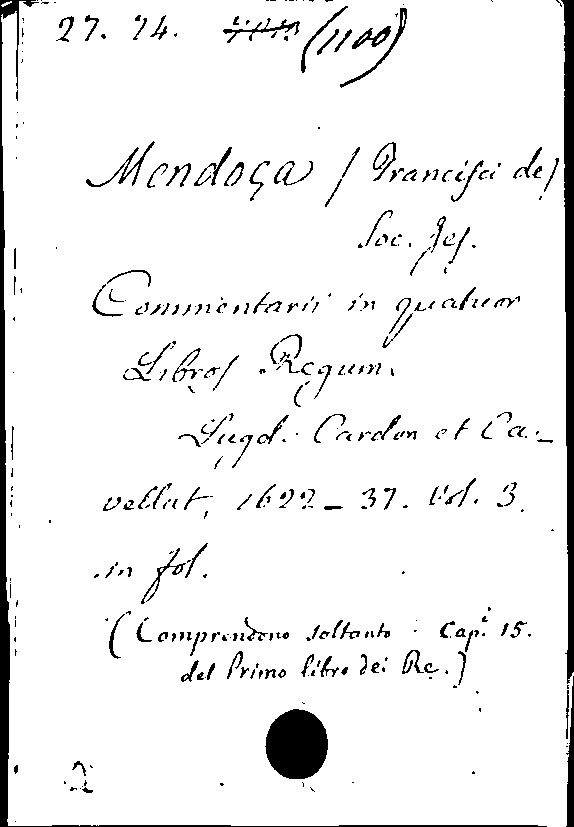 27. 74. (1100)
Mendoça / Francisci de /
Soc. Jes.
Commentarii in quatuor
Libros Regum.
Lugd. Cardon et Ca-
vellat, 1622 - 37. Vol. 3.
in fol.
(Comprendono soltanto i Capi. 15.
del Primo libro dei Re.)
2